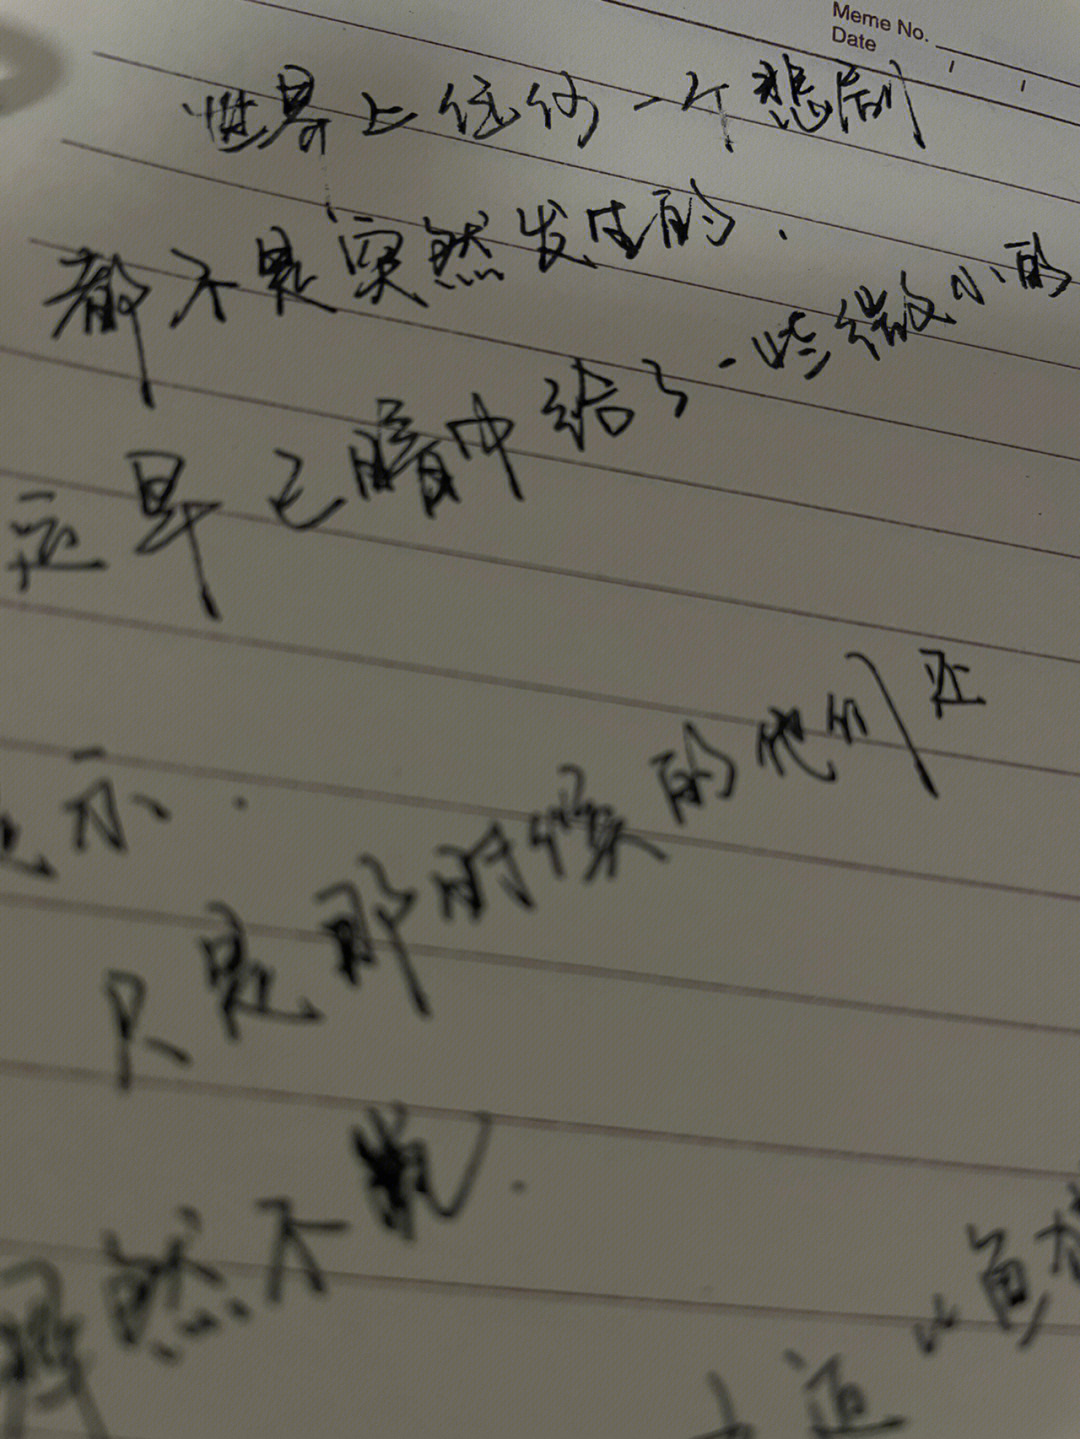 Meme No.
Date
世界上任何一个悲剧
都不是突然发生的.
一定早已暗中给了一些微小的
提示.
只是那时候的他们还
浑然不觉.